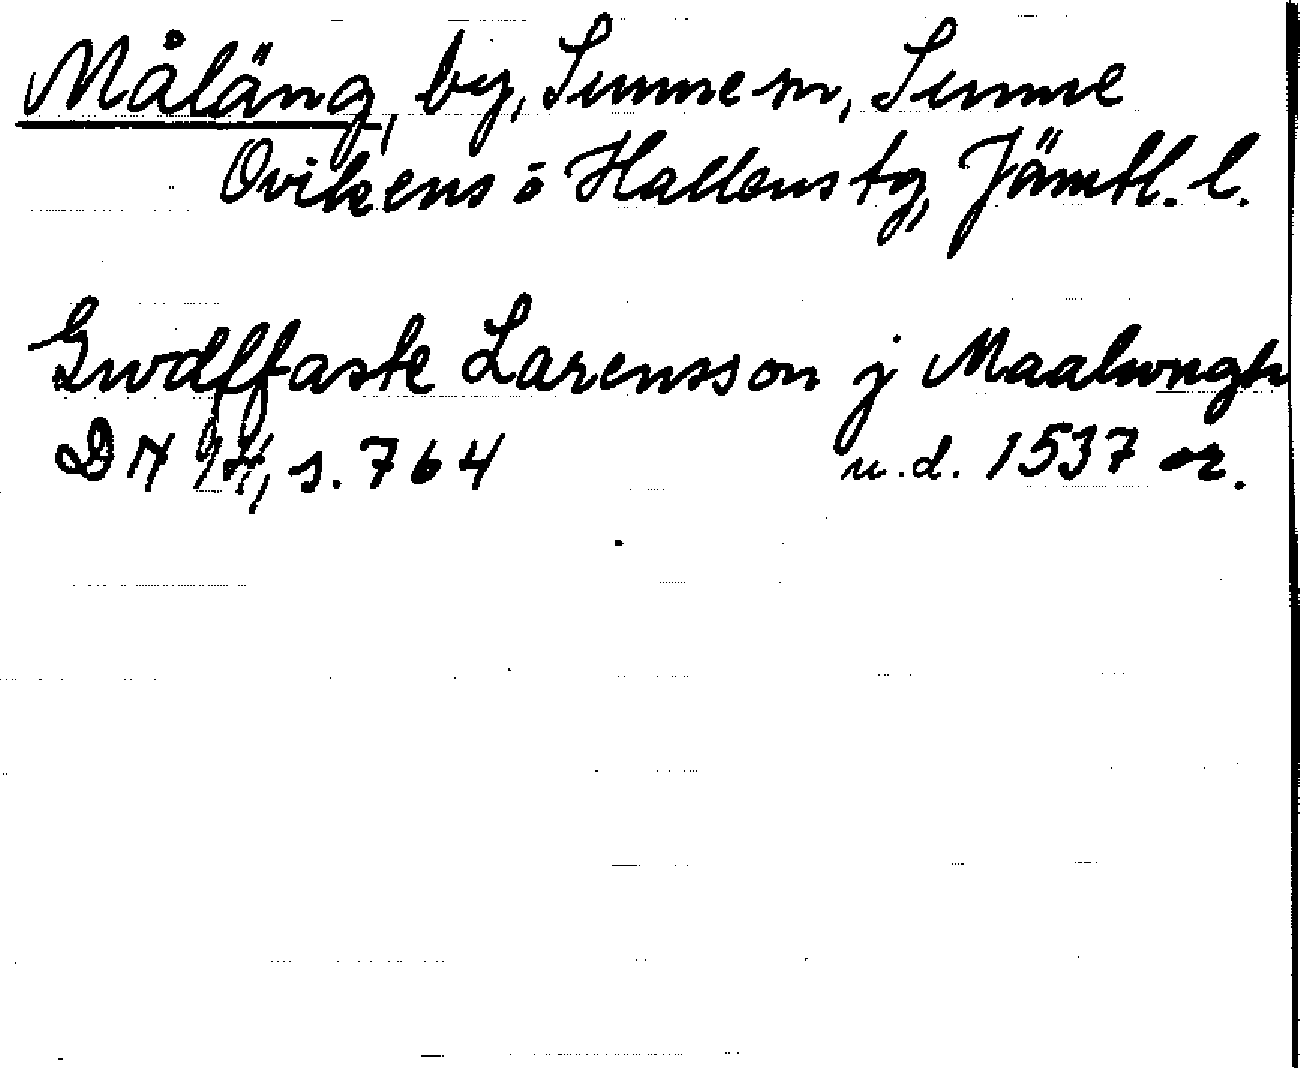 Måläng, by, Sunne sn, Sunne
Ovikens o Hallens tg, Jämtl. l.
Gwdffaste Larensson j Maalwngh
DN 14, s. 764 u.d. 1537 or.